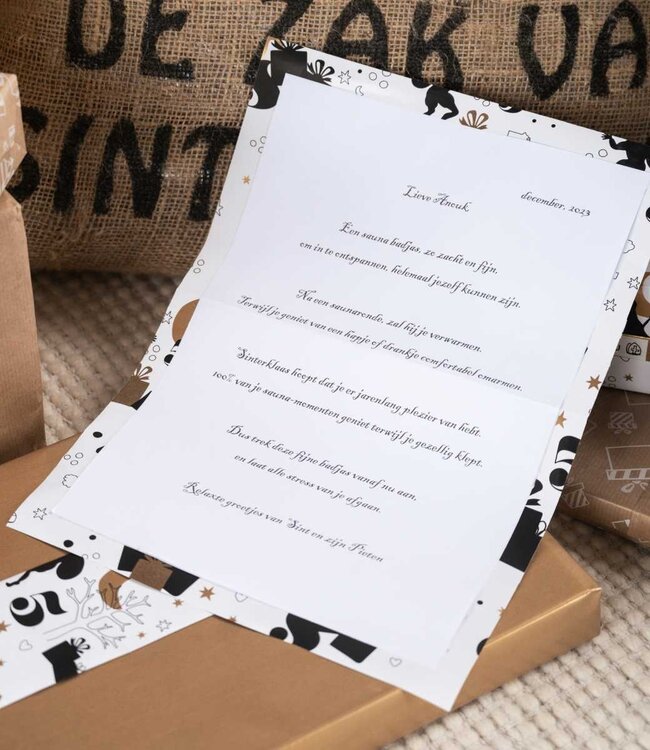 DE ZAK VA
SINT
Lieve Anouk
december, 2023
Een sauna badjas, zo zacht en fijn,
om in te ontspannen, helemaal jezelf kunnen zijn.
Na een saunaronde, zal hij je verwarmen.
Terwijl je geniet van een hapje of drankje comfortabel omarmen.
Sinterklaas hoopt dat je er jarenlang plezier van hebt.
100% van je sauna-momenten geniet terwijl je gezellig klept.
Dus trek deze fijne badjas vanaf nu aan,
en laat alle stress van je afgaan.
Relaxte groetjes van Sint en zijn Pieten
5
5